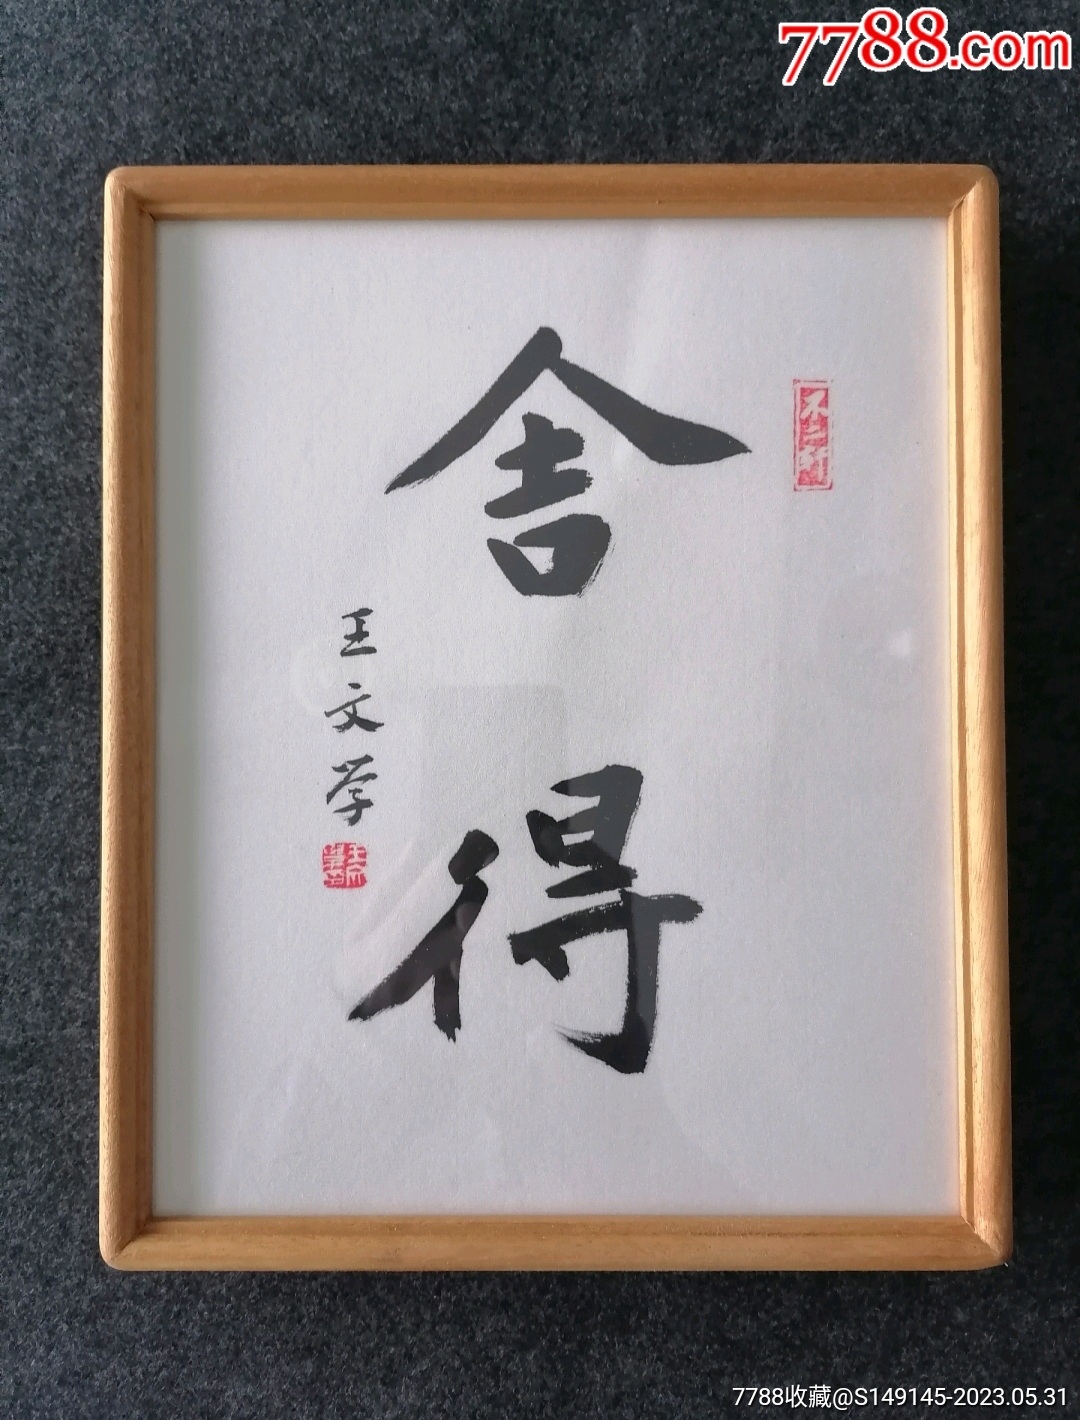 7788.com
不二轩
舍得
王文学
7788收藏@S149145-2023.05.31